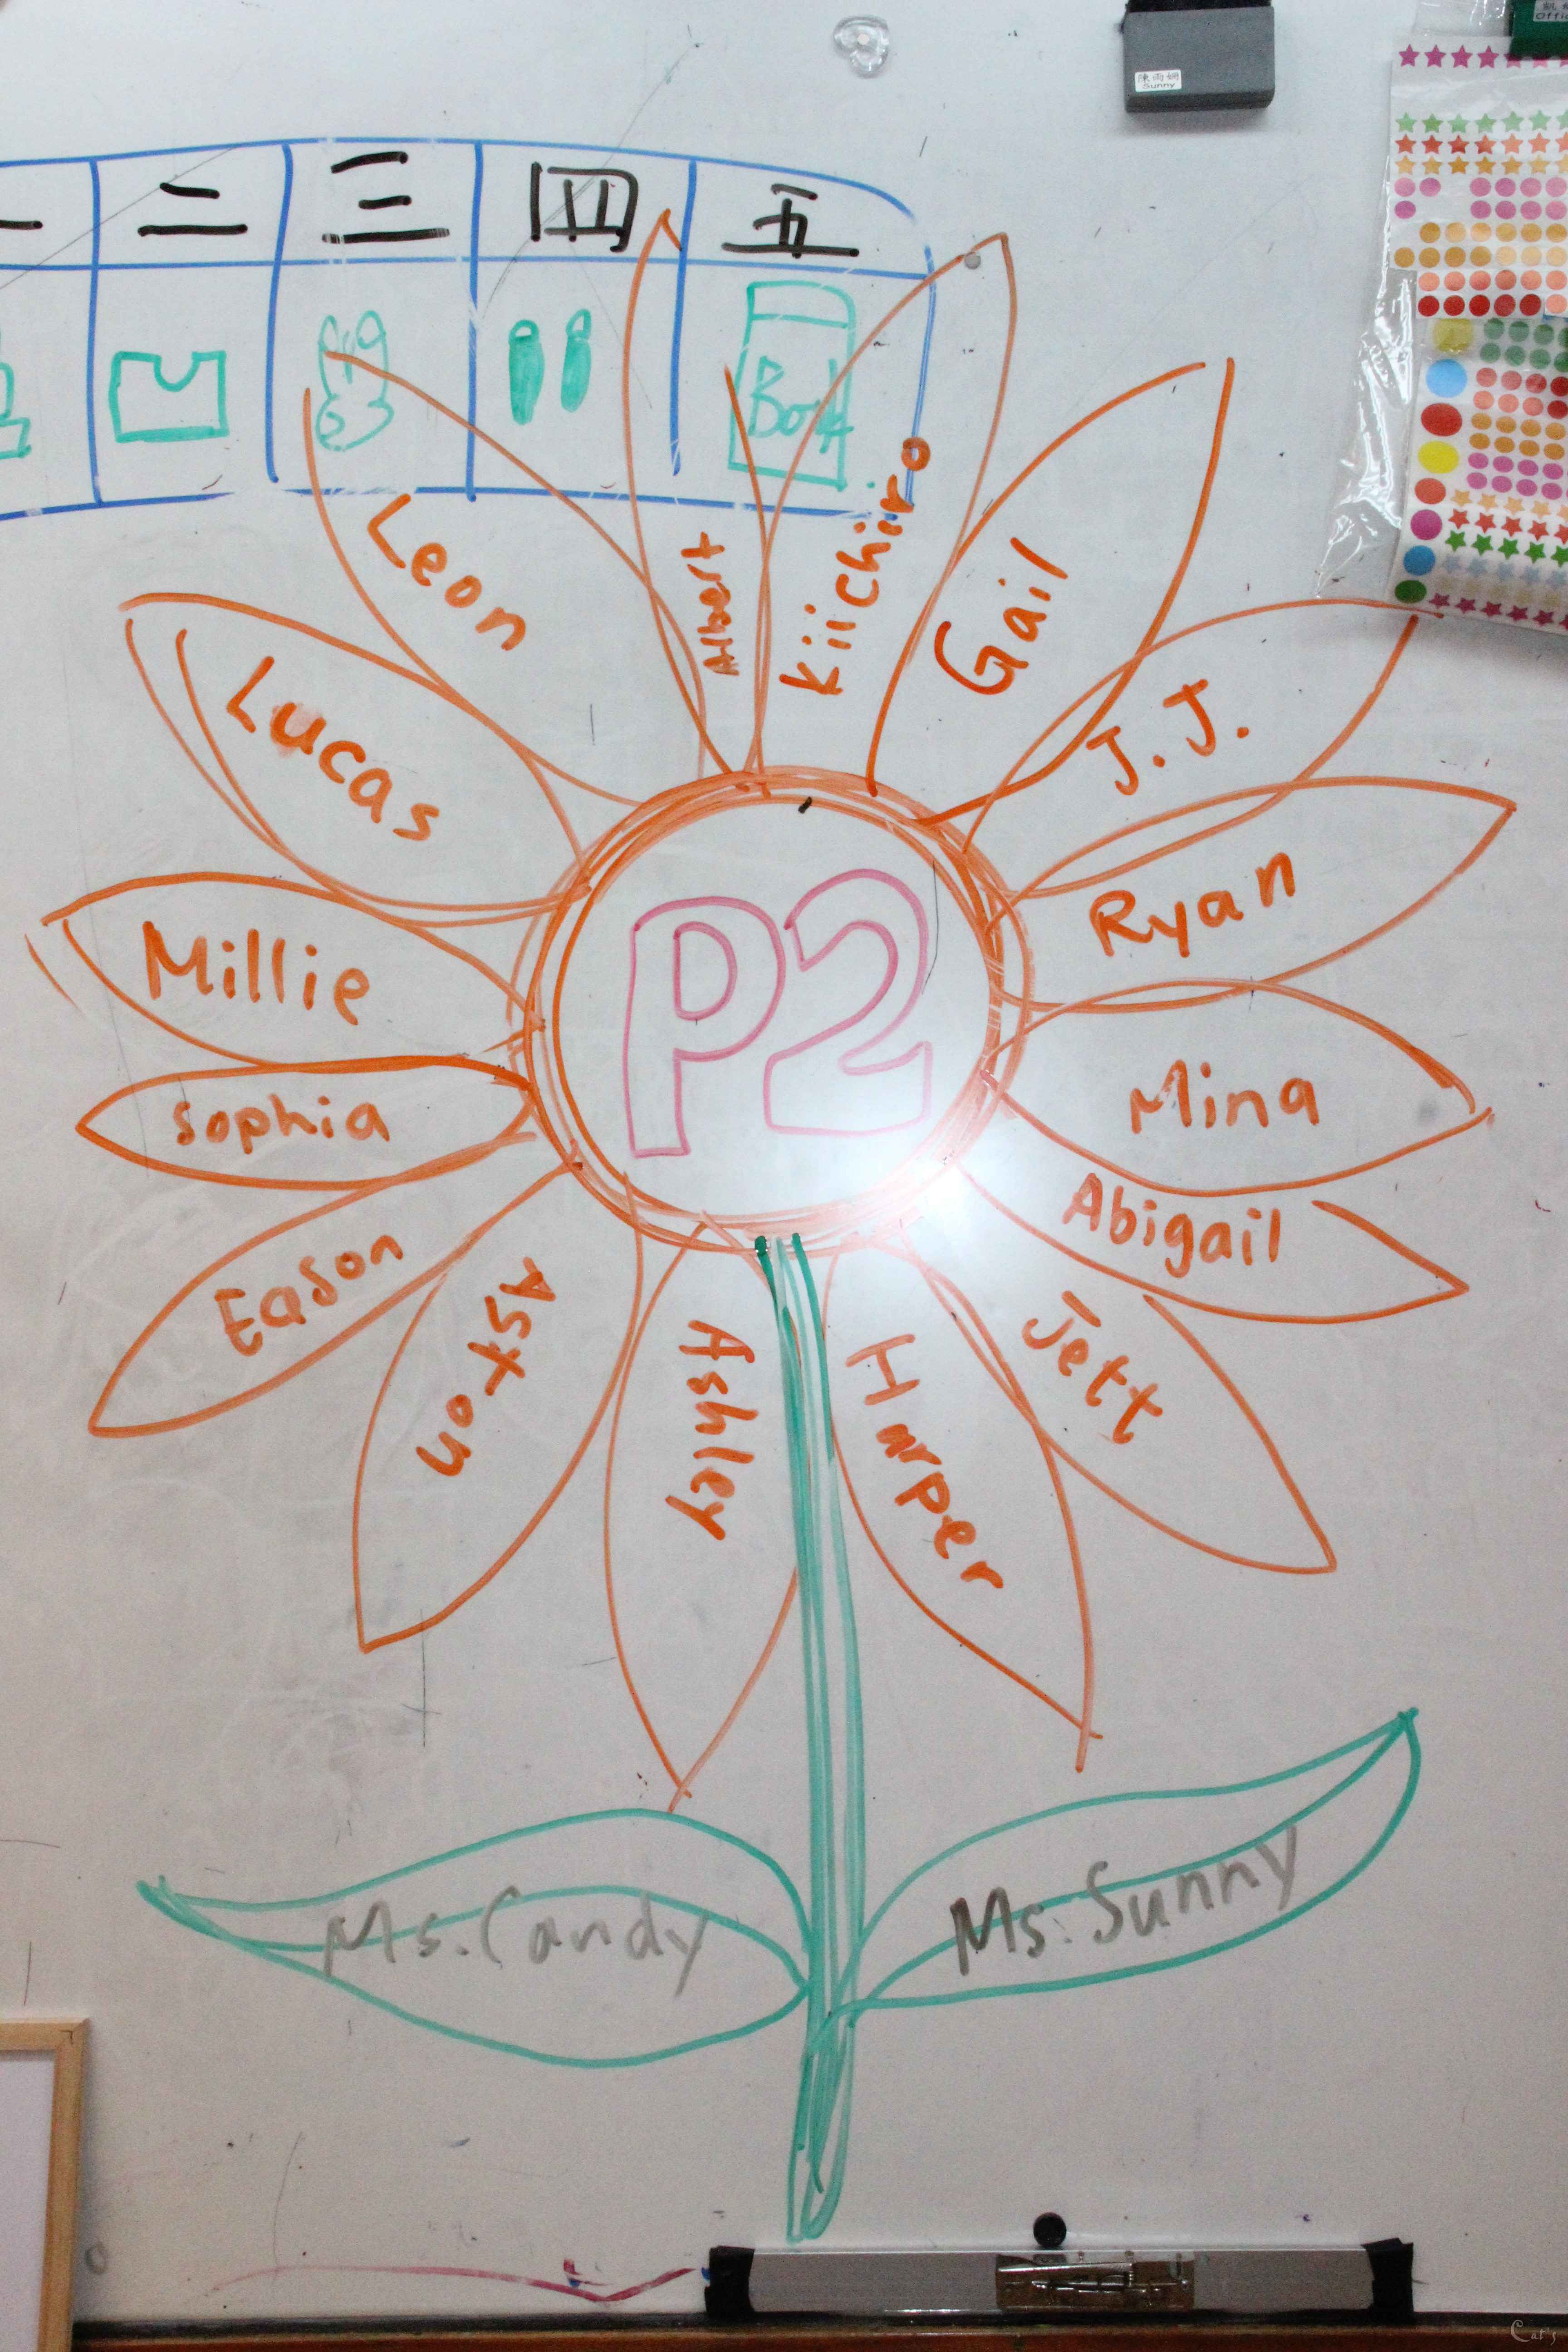 一 二 三 四 五
Book
陳雨婣
Sunny
Leon
Albert
Kiichiro
Gail
J.J.
Lucas
Ryan
Millie
P2
Mina
Sophia
Abigail
Eason
Aston
Ashley
Harper
Jett
Ms. Candy
Ms. Sunny
Cat's